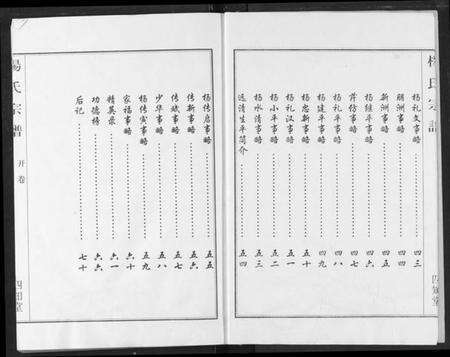 楊氏宗譜
杨礼文事略 四三
朋洲事略 四四
新洲事略 四五
杨继平事略 四六
芹仿事略 四七
杨礼平事略 四八
杨建平事略 四九
杨忠新事略 五十
杨礼汉事略 五一
杨小平事略 五二
杨水清事略 五三
远清生平简介 五四
四知堂
杨传启事略 五五
传新事略 五六
传斌事略 五七
少华事略 五八
杨传寅事略 五九
家福事略 六十
精英录 六一
功德榜 六六
后记 七十
楊氏宗譜
开卷
四知堂